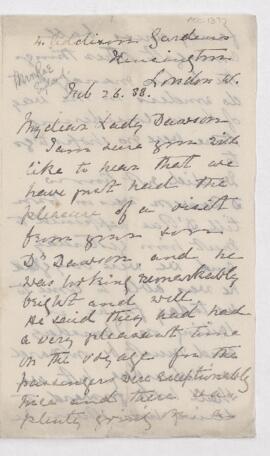 4 Addison Gardens
Kensington
London W.
Feb 26. 88.
My dear Lady Dawson
I am sure you will
like to hear that we
have just had the
pleasure of a visit
from your son
Dr Dawson and he
was looking remarkably
bright and well
He said they had had
a very pleasant time
on the voyage for the
passengers were exceptionably
nice and there was
plenty going